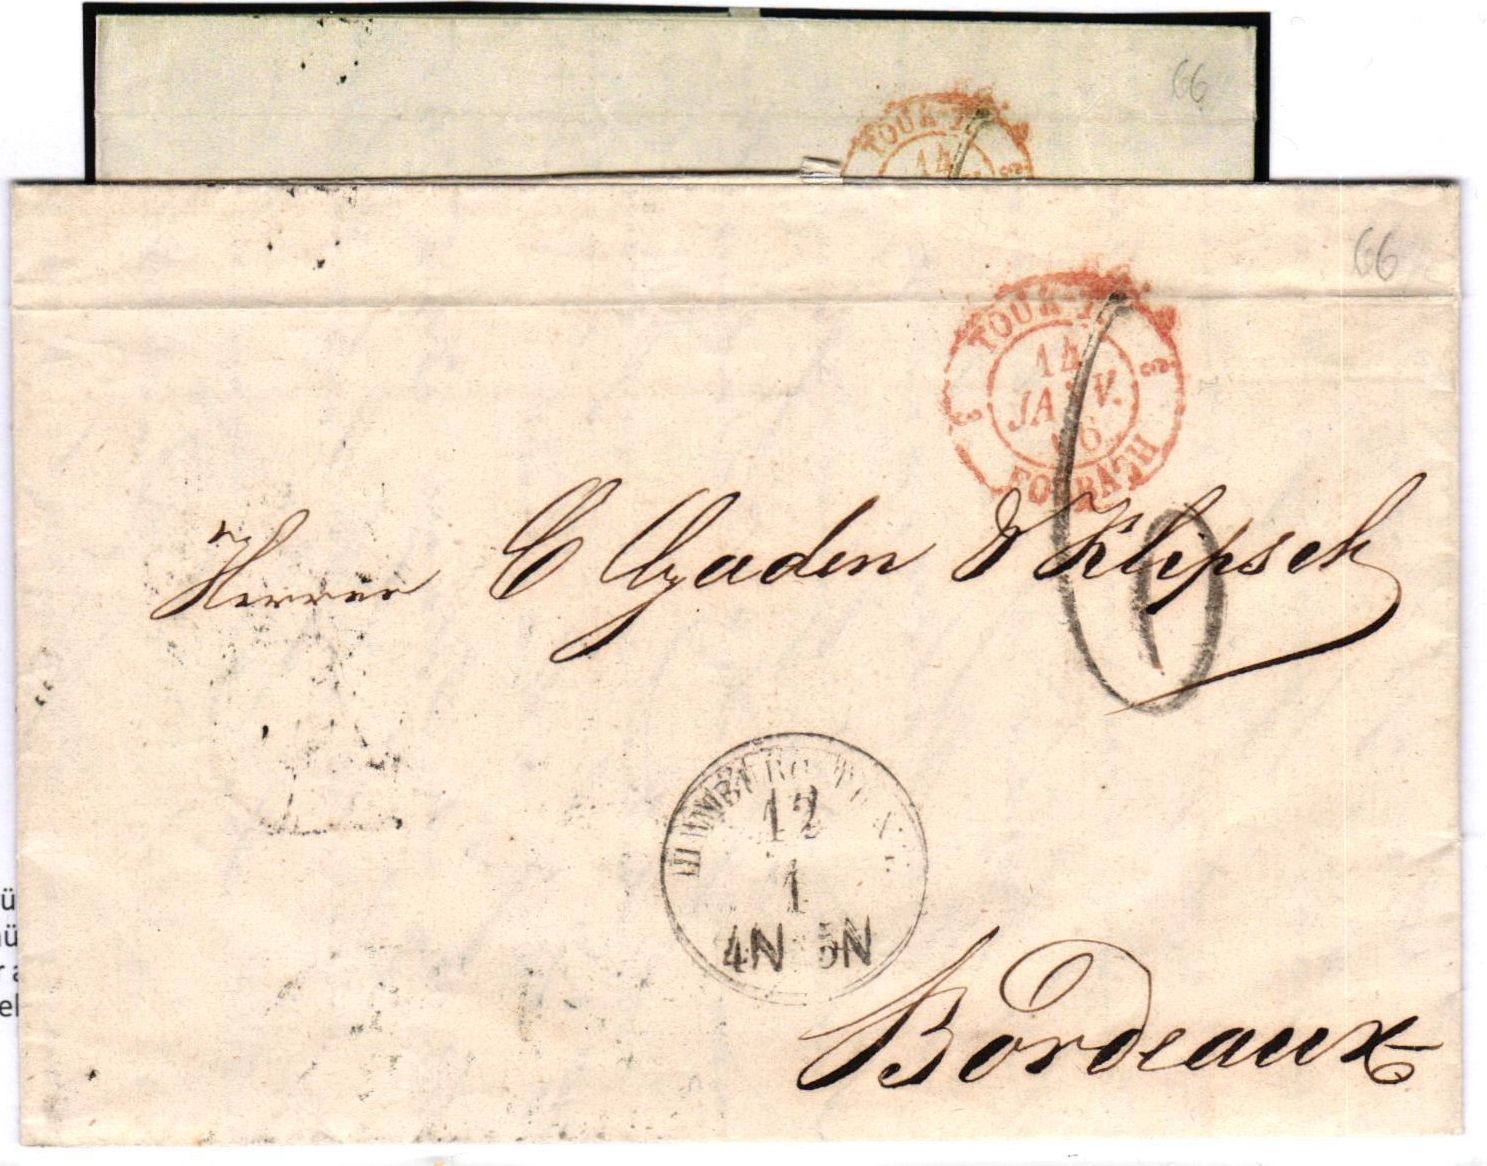 66
14
66
TOUR-T.
3 3
14
JANV.
66
FORBACH
6
Herren C Gaden & Klipsch
HAMBURG TH. & T.
12
1
4N-5N
Bordeaux